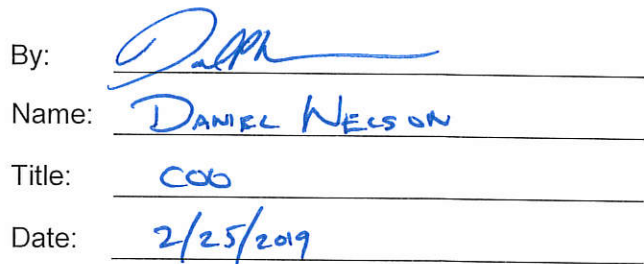 By:
Name: DANIEL NELSON
Title: COO
Date: 2/25/2019